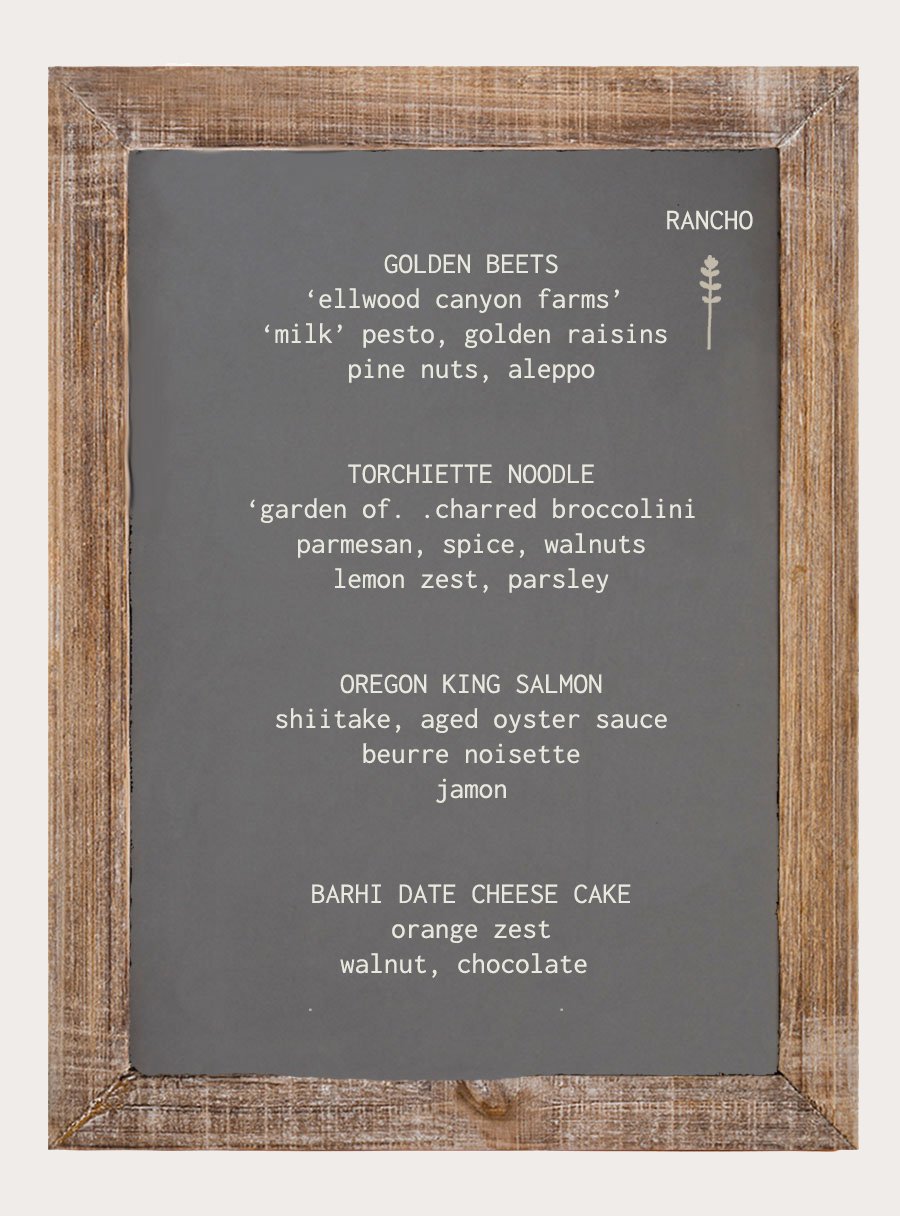 RANCHO
GOLDEN BEETS
‘ellwood canyon farms’
‘milk’ pesto, golden raisins
pine nuts, aleppo
TORCHIETTE NOODLE
‘garden of. .charred broccolini
parmesan, spice, walnuts
lemon zest, parsley
OREGON KING SALMON
shiitake, aged oyster sauce
beurre noisette
jamon
BARHI DATE CHEESE CAKE
orange zest
walnut, chocolate